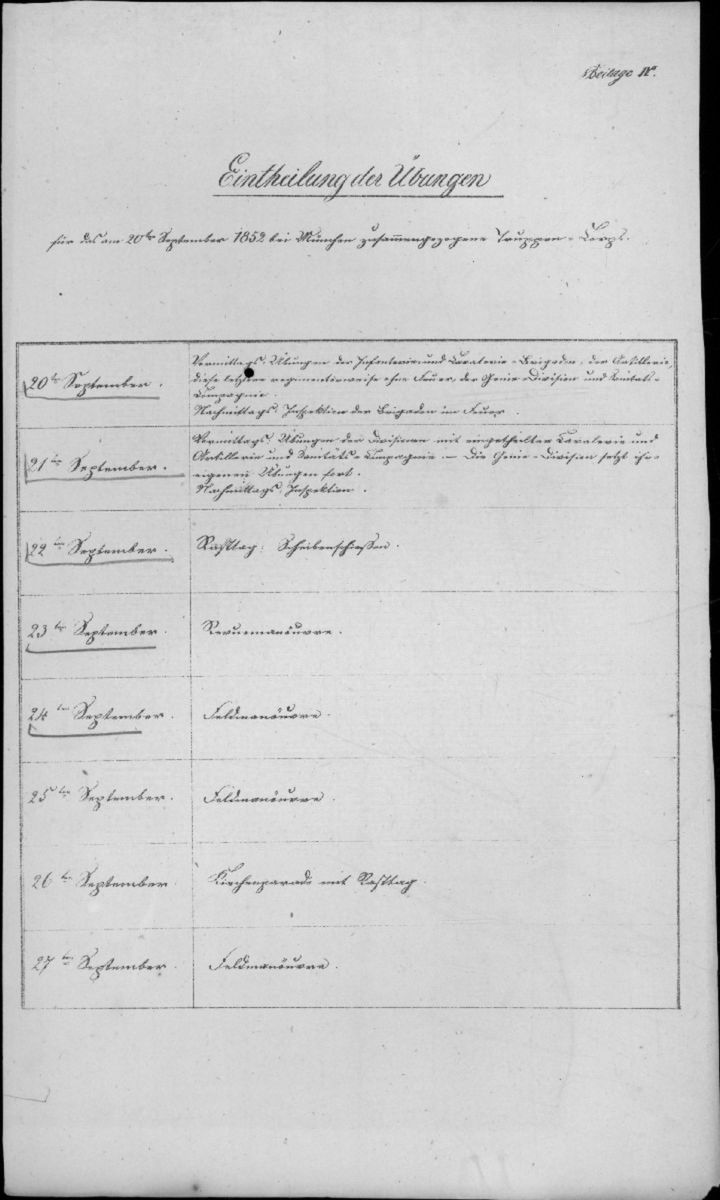 Beilage IVa.
Eintheilung der Übungen
für das am 20ten September 1852 bei München zusammengezogene Truppen-Corps.
20ten September.
Vormittags: Übungen der Infanterie und Cavalerie-Brigaden, der Artillerie,
diese letztere regimenterweise ohne Feuer, der Genie-Division und Sanitäts-
Compagnie.
Nachmittags: Inspektion der Brigaden im Feuer.
21ten September.
Vormittags: Übungen der Divisionen mit eingetheilter Cavalerie und
Artillerie und Sanitäts-Compagnie. – Die Genie-Division setzt ihre
eigenen Übungen fort.
Nachmittags: Inspektion.
22ten September.
Rasttag: Scheibenschießen.
23ten September.
Revuemanöuvre.
24ten September.
Feldmanöuvre.
25ten September.
Feldmanöuvre.
26ten September.
Kirchenparade mit Rasttag.
27ten September.
Feldmanöuvre.